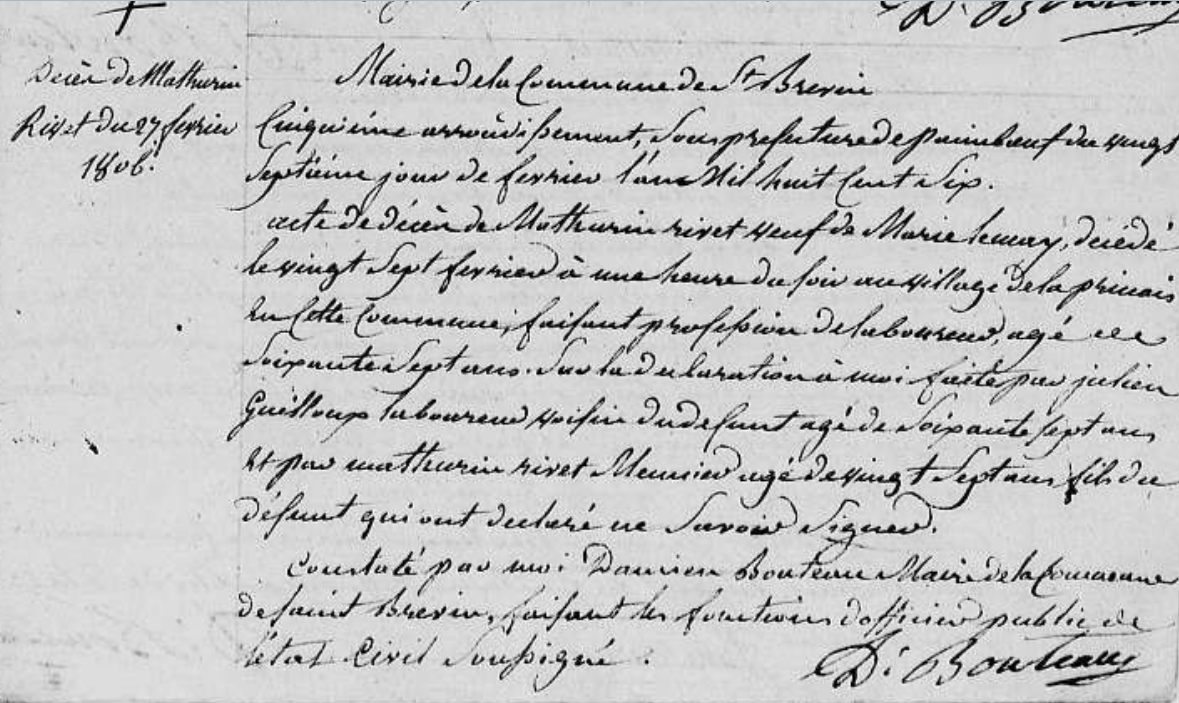 D. Bouteau
Décès de Mathurin
Rivet du 27 fevrier
1806.
Mairie de la Commune de St Brevin
Cinquième arrondissement, Sous prefecture de paimbœuf du vingt
Septième jour de fevrier l'an Mil huit Cent Six.
acte de décès de Mathurin rivet veuf de Marie lemay, décédé
le vingt Sept fevrier à une heure du soir au village de la princais
En Cette Commune, faisant profession de laboureur, agé de
Soixante Sept ans. Sur la declaration à moi faite par julien
Guilloup laboureur voisin du defunt agé de Soixante Sept ans
Et par mathurin rivet Meunier agé de vingt Sept ans fils du
défunt qui ont declaré ne Savoir Signer.
Constaté par moi Damien Bouteau Maire de la Commune
de saint Brevin, faisant les fonctions d'officier public de
l'état Civil Soussigné.
D. Bouteau